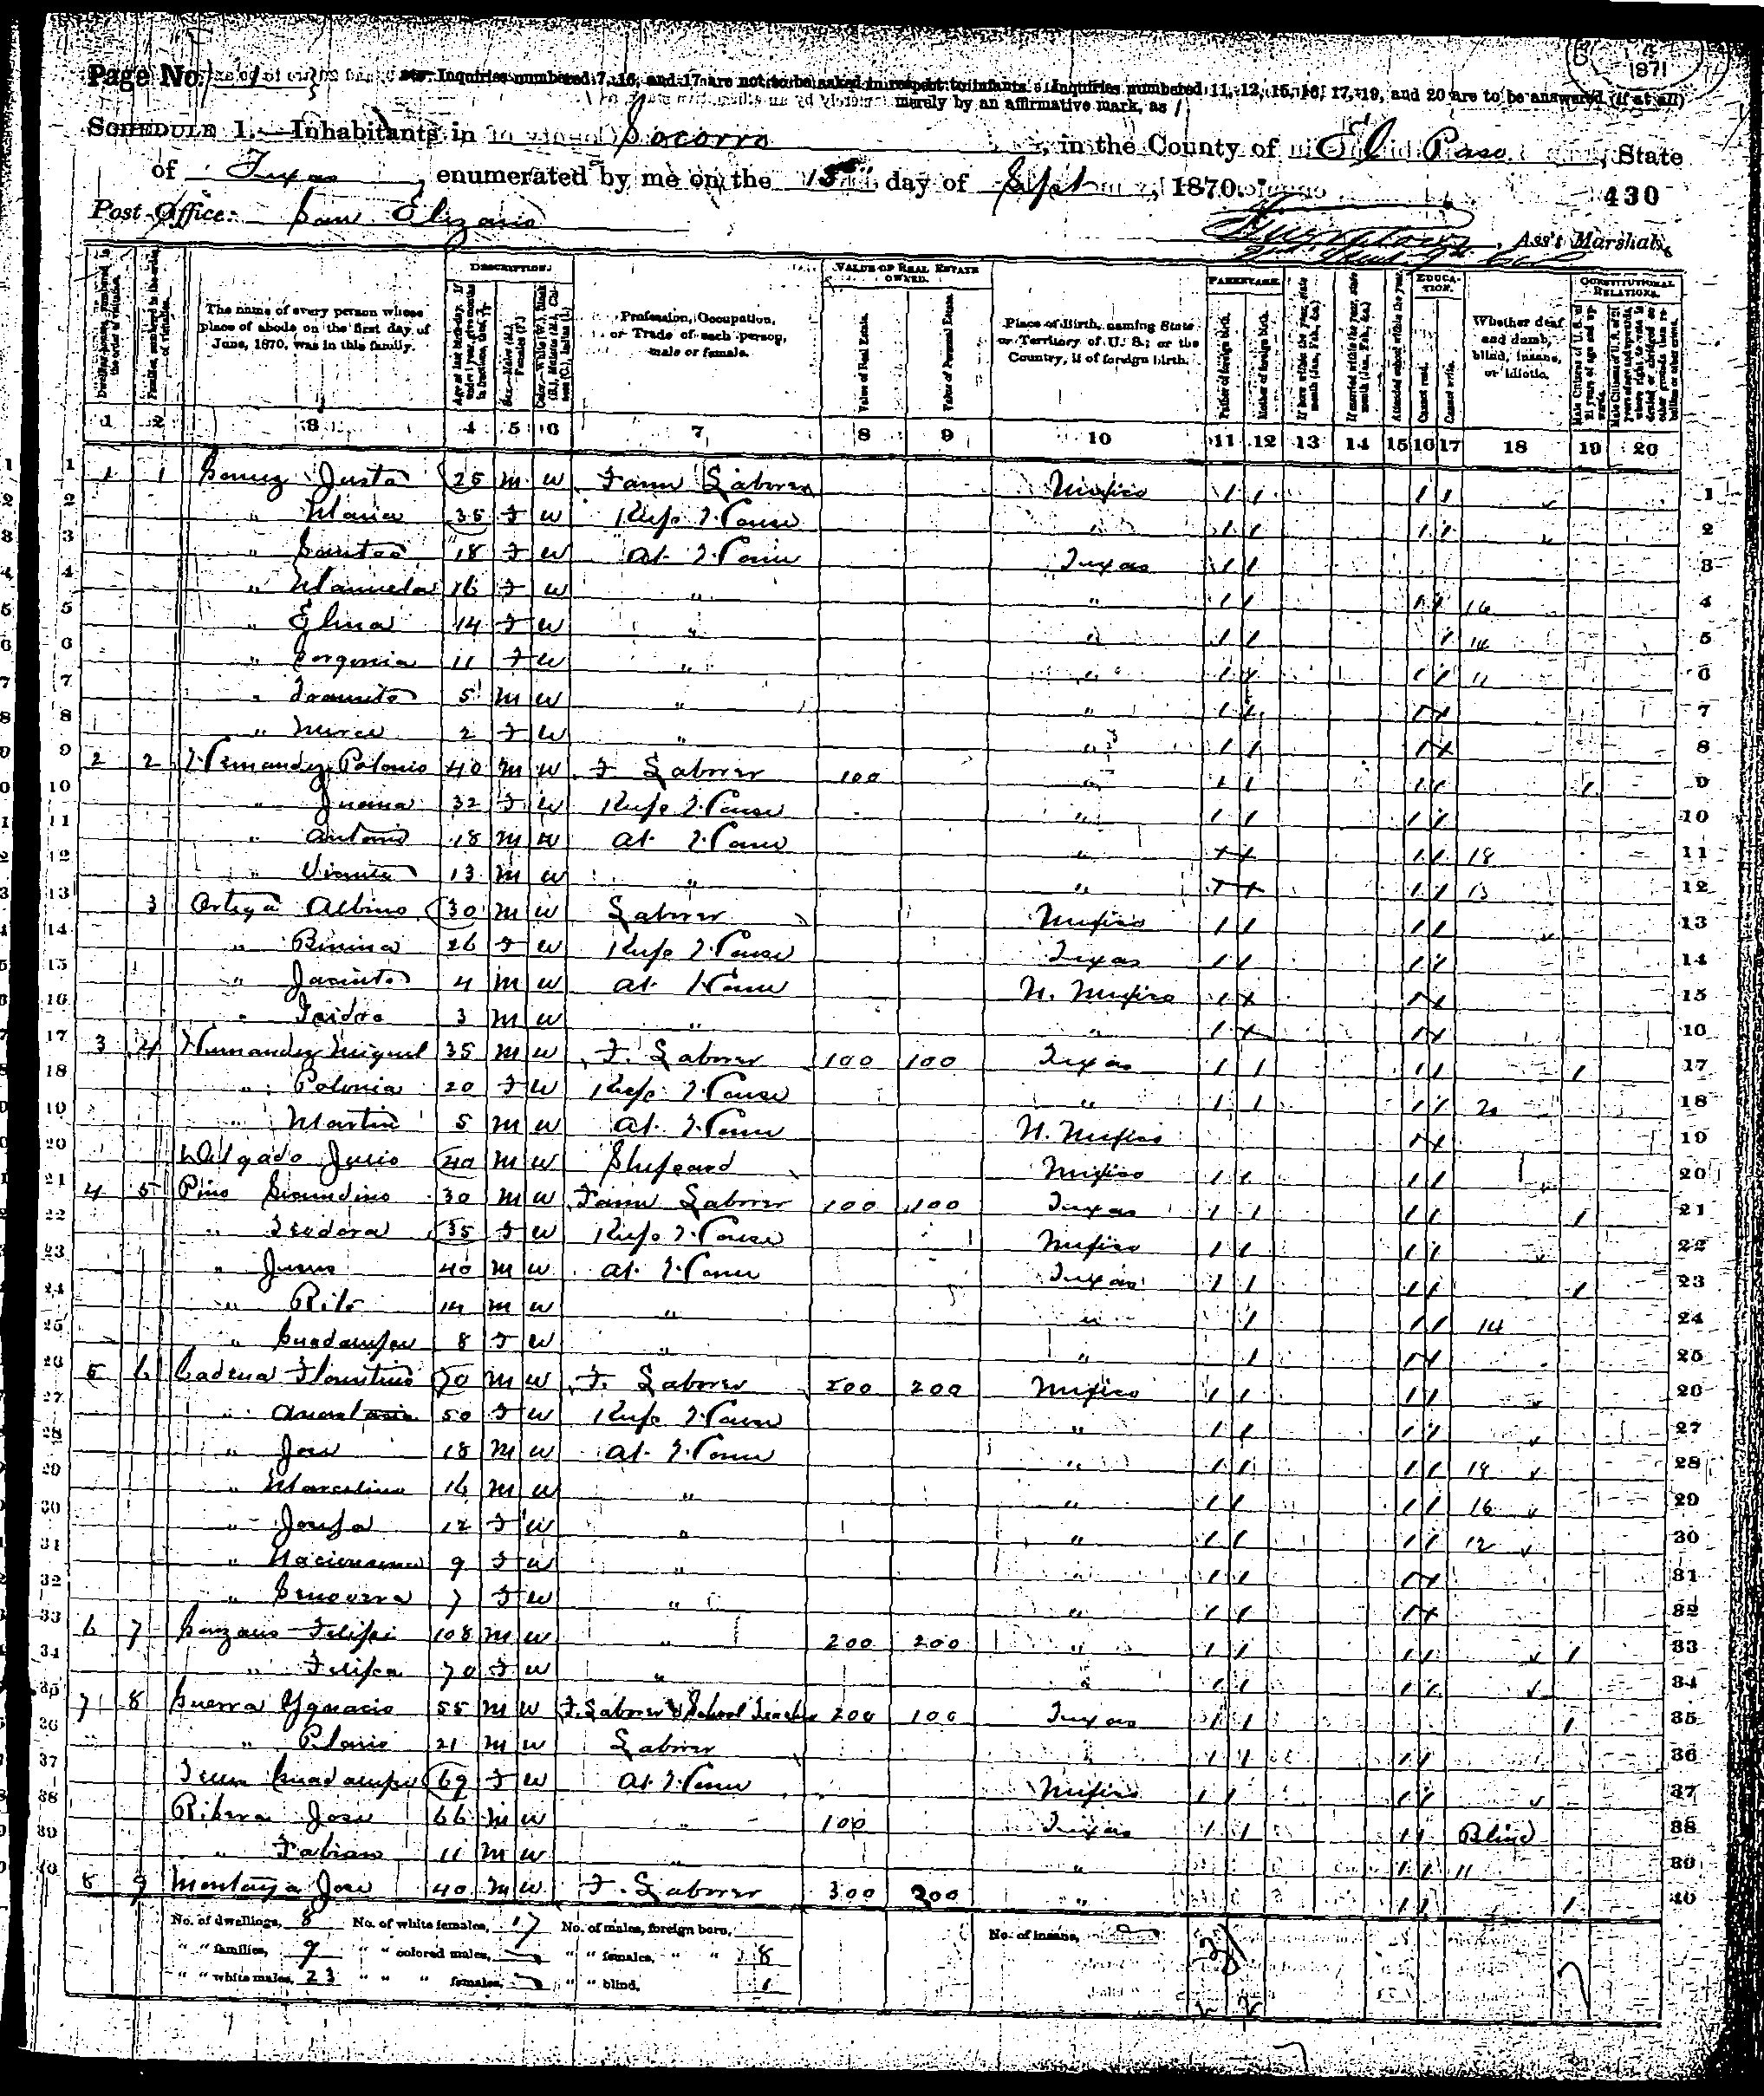 1871
Page No.
Inquiries numbered 7, 16, and 17 are not to be asked in respect to infants. Inquiries numbered 11, 12, 15, 16, 17, 19, and 20 are to be answered (if at all)
merely by an affirmative mark, as /
SCHEDULE 1.—Inhabitants in Socorro, in the County of El Paso, State
of Texas, enumerated by me on the 15th day of Sept, 1870.
430
Post-Office: San Elizario
, Ass't Marshal.
DESCRIPTION. VALUE OF REAL ESTATE OWNED. PARENTAGE. EDUCATION. CONSTITUTIONAL RELATIONS.
Dwelling-houses, numbered in the order of visitation.
Families, numbered in the order of visitation.
The name of every person whose place of abode on the first day of June, 1870, was in this family.
Age at last birth-day. If under 1 year, give months in fractions, thus, 3/12
Sex.—Males (M.), Females (F.)
Color.—White (W.), Black (B.), Mulatto (M.), Chinese (C.), Indian (I.)
Profession, Occupation, or Trade of each person, male or female.
Value of Real Estate.
Value of Personal Estate.
Place of Birth, naming State or Territory of U. S.; or the Country, if of foreign birth.
Father of foreign birth.
Mother of foreign birth.
If born within the year, state month (Jan., Feb., &c.)
If married within the year, state month (Jan., Feb., &c.)
Attended school within the year.
Cannot read.
Cannot write.
Whether deaf and dumb, blind, insane, or idiotic.
Male Citizens of U. S. of 21 years of age and upwards.
Male Citizens of U. S. of 21 years of age and upwards, where right to vote is denied or abridged on other grounds than rebellion or other crime.
1 2 3 4 5 6 7 8 9 10 11 12 13 14 15 16 17 18 19 20
1 1 1 Gomez Justo 25 M W Farm Laborer Mexico / / / / 1
2 " Maria 35 F W Keeps House " / / / / 2
3 " Santos 18 F W At Home Texas / / 3
4 " 16 F W " " / / / / 16 4
5 " 14 F W " " / / / 14 5
6 " Gorgonia 11 F W " " / / / / 11 6
7 " Transito 5 M W " " / / / / 7
8 " Merce 2 F W " " / / / / 8
9 2 2 Hernandez Polonio 40 M W F Laborer 100 " / / / / / 9
10 " Juana 32 F W Keeps House " / / / / 10
11 " Antonio 18 M W At Home " / / / / 18 11
12 " Vicente 13 M W " " / / / / 13 12
13 3 Ortega Albino 30 M W Laborer Mexico / / / / 13
14 " Benina 26 F W Keeps House Texas / / / / 14
15 " Jacinto 4 M W At Home N. Mexico / / / / 15
16 " Isidro 3 M W " " / / / / 16
17 3 4 Hernandez Miguel 35 M W F. Laborer 100 100 Texas / / / / / 17
18 " Polonia 20 F W Keeps House " / / / / 20 18
19 " Martin 5 M W At Home N. Mexico / / 19
20 Delgado Julio 40 M W Shepeard Mexico / / / / 20
21 4 5 Pino 30 M W Farm Laborer 100 100 Texas / / / / / 21
22 " Teodora 35 F W Keeps House Mexico / / / / 22
23 " 40 M W At Home Texas / / / / / 23
24 " Rito 14 M W " " / / / 14 24
25 " Guadalupe 8 F W " " / / / 25
26 5 6 Cadena Florentino 70 M W F. Laborer 200 200 Mexico / / / / 26
27 " Anastasia 50 F W Keeps House " / / / / 27
28 " Jose 18 M W At Home " / / / / 18 28
29 " Marcelino 16 M W " " / / / / 16 29
30 " Josefa 12 F W " " / / / / 12 30
31 " 9 F W " " / / / / 31
32 " Genovera 7 F W " " / / / / 32
33 6 7 Felipe 108 M W " 200 200 " / / / / / 33
34 " Felipa 70 F W " " / / / / 34
35 7 8 Guerra Ygnacio 55 M W F. Laborer & School Teacher 200 100 Texas / / / 35
36 " 21 M W Laborer " / / / / 36
37 Guadalupe 69 F W At Home Mexico / / / / 37
38 Ribera Jose 66 M W " 100 Texas / / / / Blind 38
39 " Fabian 11 M W " " / / 11 39
40 8 9 Montoya Jose 40 M W F. Laborer 300 200 " / / / 40
No. of dwellings, 8 No. of white females, 17 No. of males, foreign born, No. of insane,
" " families, 9 " " colored males, " " females, " " 8
" " white males, 23 " " " females, " " blind, 1